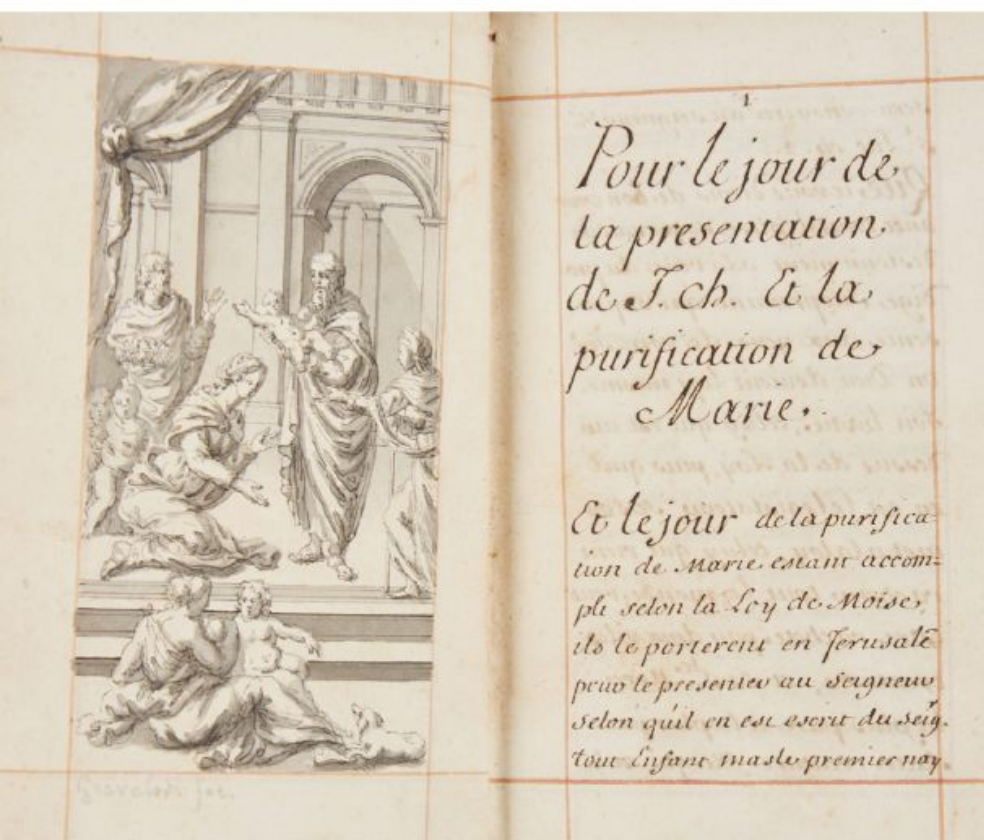 1
Pour le jour de
la presentation
de J. ch. Et la
purification de
Marie.
Et le jour de la purifica-
tion de Marie estant accom=
pli selon la Loy de Moise,
ils le porterent en Jerusalẽ
pour le presenter au Seigneur
selon qu'il en est escrit du Seig.
tout Enfant masle premier nay